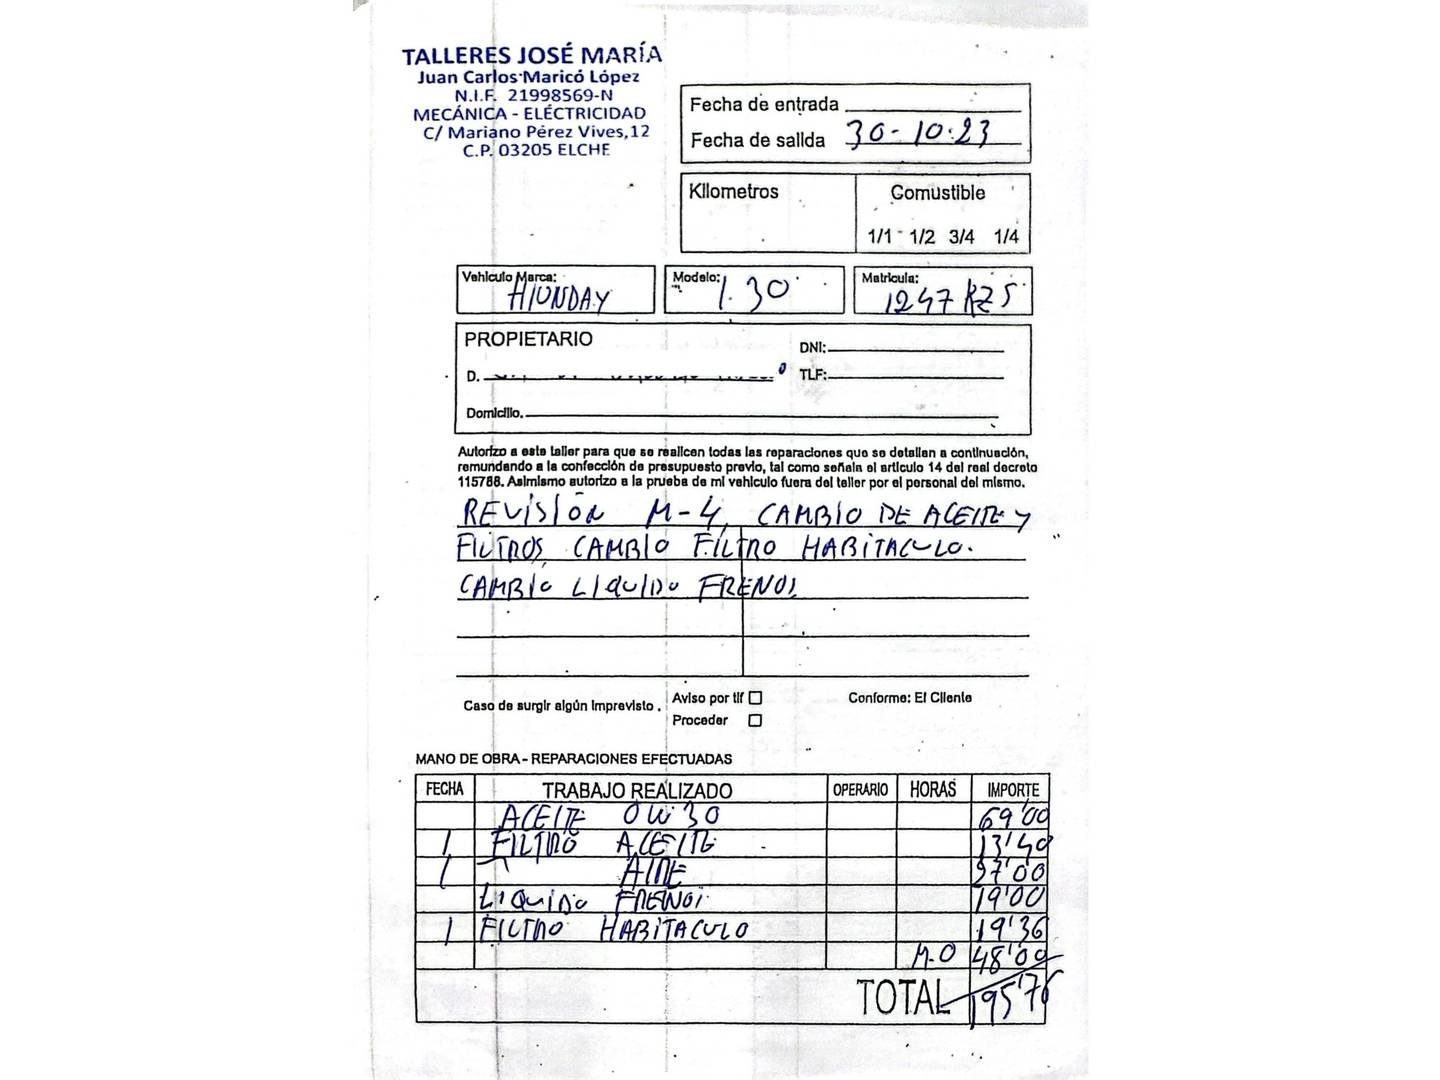 TALLERES JOSÉ MARÍA
Juan Carlos Maricó López
N.I.F. 21998569-N
MECÁNICA - ELÉCTRICIDAD
C/ Mariano Pérez Vives,12
C.P. 03205 ELCHE
Fecha de entrada
Fecha de salida 30-10-23
Kilometros
Comustible
1/1 1/2 3/4 1/4
Vehiculo Marca: HIUNDAY
Modelo: 1.30
Matricula: 1247 KZS
PROPIETARIO
DNI:
D.
TLF:
Domicilio.
Autorizo a este taller para que se realicen todas las reparaciones que se detallan a continuación,
remundando a la confección de presupuesto previo, tal como señala el articulo 14 del real decreto
115788. Asimismo autorizo a la prueba de mi vehiculo fuera del taller por el personal del mismo.
REVISIÓN M-4, CAMBIO DE ACEITE Y
FILTROS, CAMBIO FILTRO HABITACULO.
CAMBIO LIQUIDO FRENOS
Caso de surgir algún Imprevisto .
Aviso por tlf
Proceder
Conforme: El Cliente
MANO DE OBRA - REPARACIONES EFECTUADAS
FECHA TRABAJO REALIZADO OPERARIO HORAS IMPORTE
ACEITE 0W30 69'00
1 FILTRO ACEITE 13'40
1 AIRE 27'00
LIQUIDO FRENOS 19'00
1 FILTRO HABITACULO 19'36
M.O 48'00
TOTAL 195'76